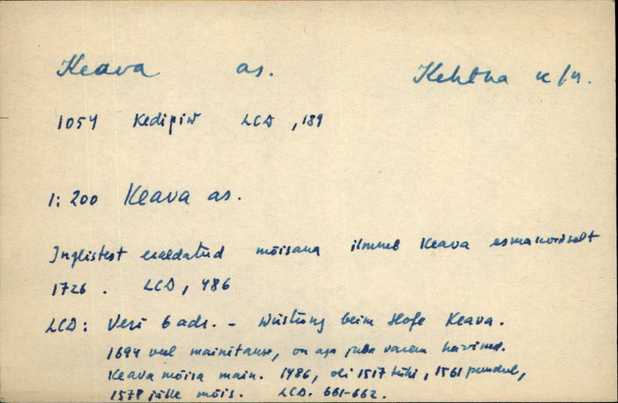 Keava as. Kehtna k/n.
1054 Kedipiw LCD, 189
1:200 Keava as.
Inglistest eraldatud mõisana ilmneb Keava esmakordselt
1726. LCD, 486
LCD: Veri 6 ads. - Wüstung beim Hofe Keava.
1694 veel mainitakse, on aga juba varem hävined.
Keava mõisa main. 1486, oli 1517 küla, 1561
1578 jälle mõis. LCD. 661-662.